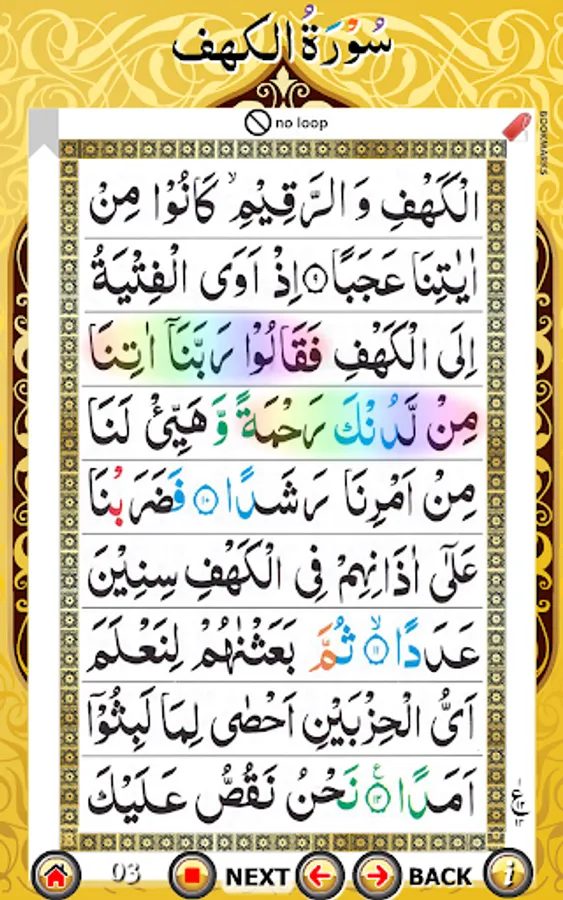 سُوْرَةُ الْكَهْف
no loop
BOOKMARKS
الْكَهْفِ وَ الرَّقِيْمِ ۙ كَانُوْا مِنْ
اٰيٰتِنَا عَجَبًا ۹ اِذْ اَوَى الْفِتْيَةُ
اِلَى الْكَهْفِ فَقَالُوْا رَبَّنَاۤ اٰتِنَا
مِنْ لَّدُنْكَ رَحْمَةً وَّ هَيِّئْ لَنَا
مِنْ اَمْرِنَا رَشَدًا ۱۰ فَضَرَبْنَا
عَلٰۤى اٰذَانِهِمْ فِى الْكَهْفِ سِنِيْنَ
عَدَدًا ۙ ۱۱ ثُمَّ بَعَثْنٰهُمْ لِنَعْلَمَ
اَىُّ الْحِزْبَيْنِ اَحْصٰى لِمَا لَبِثُوْۤا
اَمَدًا ۱۲ ع نَحْنُ نَقُصُّ عَلَيْكَ
03 NEXT BACK i